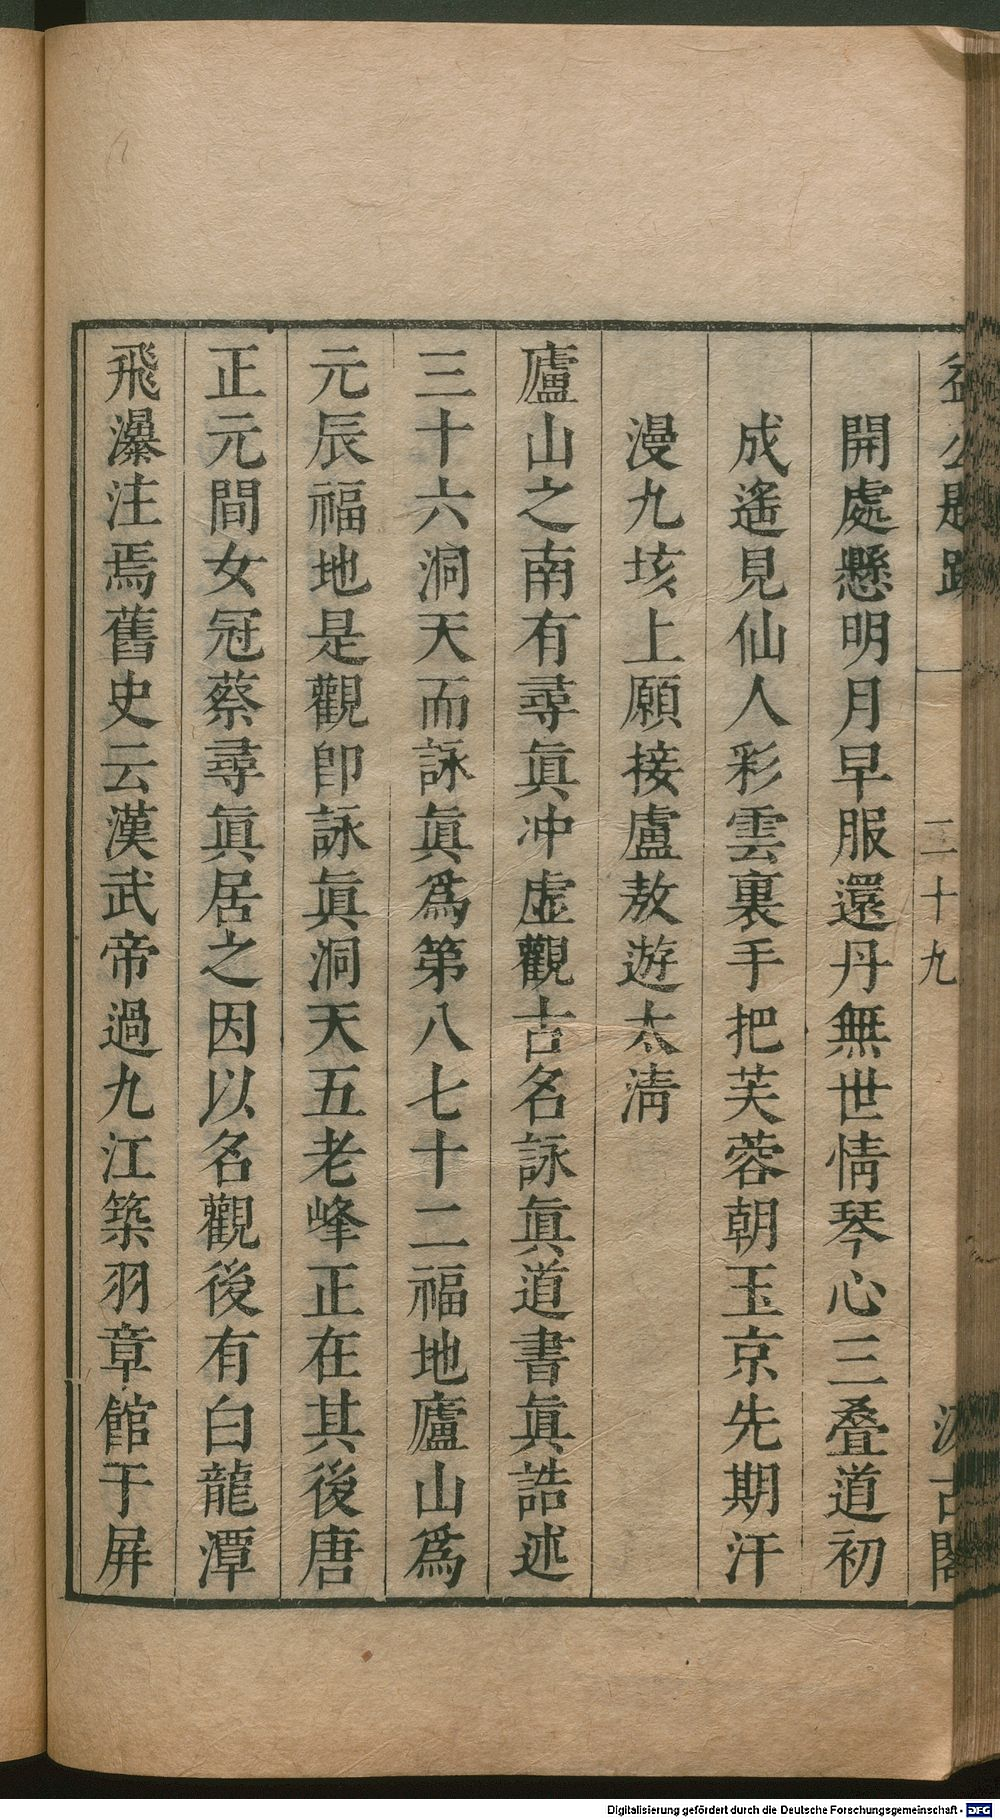 益公題跋 一 二十九 汲古閣
開處懸明月早服還丹無世情琴心三疊道初
成遙見仙人彩雲裏手把芙蓉朝玉京先期汗
漫九垓上願接盧敖遊太清
廬山之南有尋眞冲虛觀古名詠眞道書眞誥述
三十六洞天而詠眞爲第八七十二福地廬山爲
元辰福地是觀卽詠眞洞天五老峰正在其後唐
正元間女冠蔡尋眞居之因以名觀後有白龍潭
飛瀑注焉舊史云漢武帝過九江築羽章館于屏
Digitalisierung gefördert durch die Deutsche Forschungsgemeinschaft - DFG